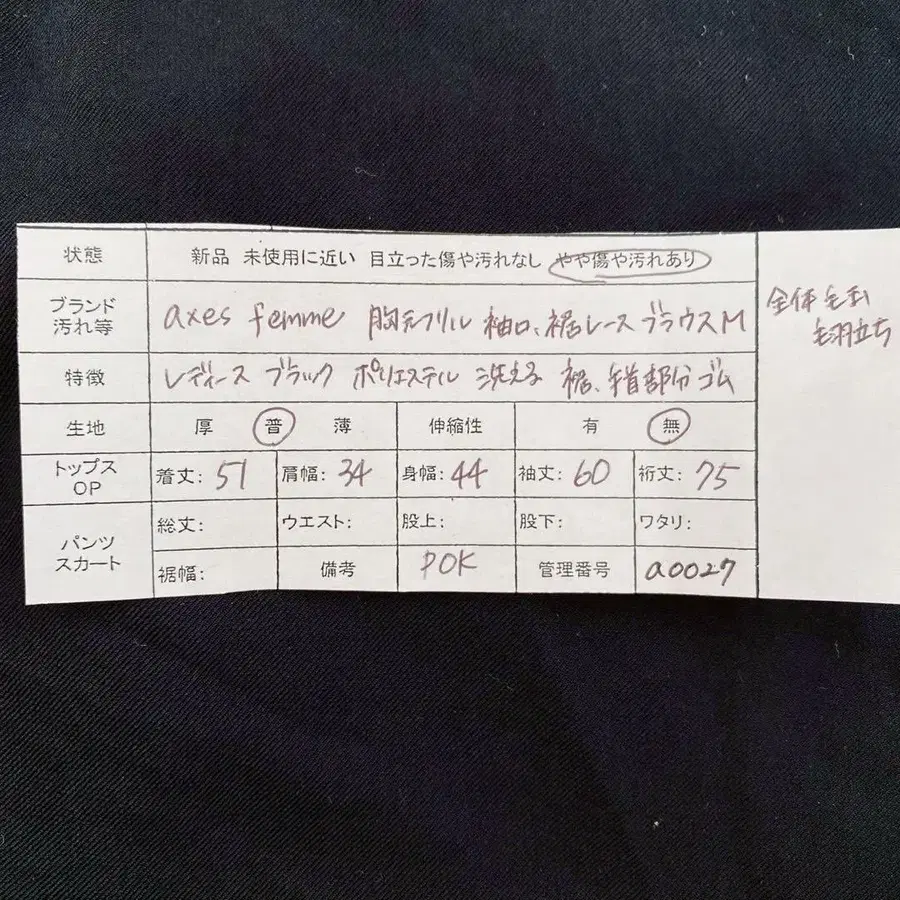 状態 新品 未使用に近い 目立った傷や汚れなし やや傷や汚れあり
ブランド
汚れ等
axes femme 胸元フリル 袖口、裾レース ブラウス M
特徴 レディース ブラック ポリエステル 洗える 裾、手首部分ゴム
生地 厚 普 薄 伸縮性 有 無
トップス
OP
着丈: 51 肩幅: 34 身幅: 44 袖丈: 60 裄丈: 75
パンツ
スカート
総丈: ウエスト: 股上: 股下: ワタリ:
裾幅: 備考 POK 管理番号 a0027
全体毛玉
毛羽立ち